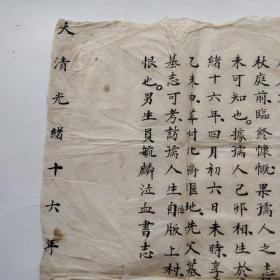 杖庭前臨終慷慨果孺人之志
未可知也據孺人己卯相生於
緒十六年四月初六日未時享
乙未申葬付北斋區地先父墓
墓志可考訪孺人生自版上村
恨也男生員毓麟泣血書志
大清光緒十六年